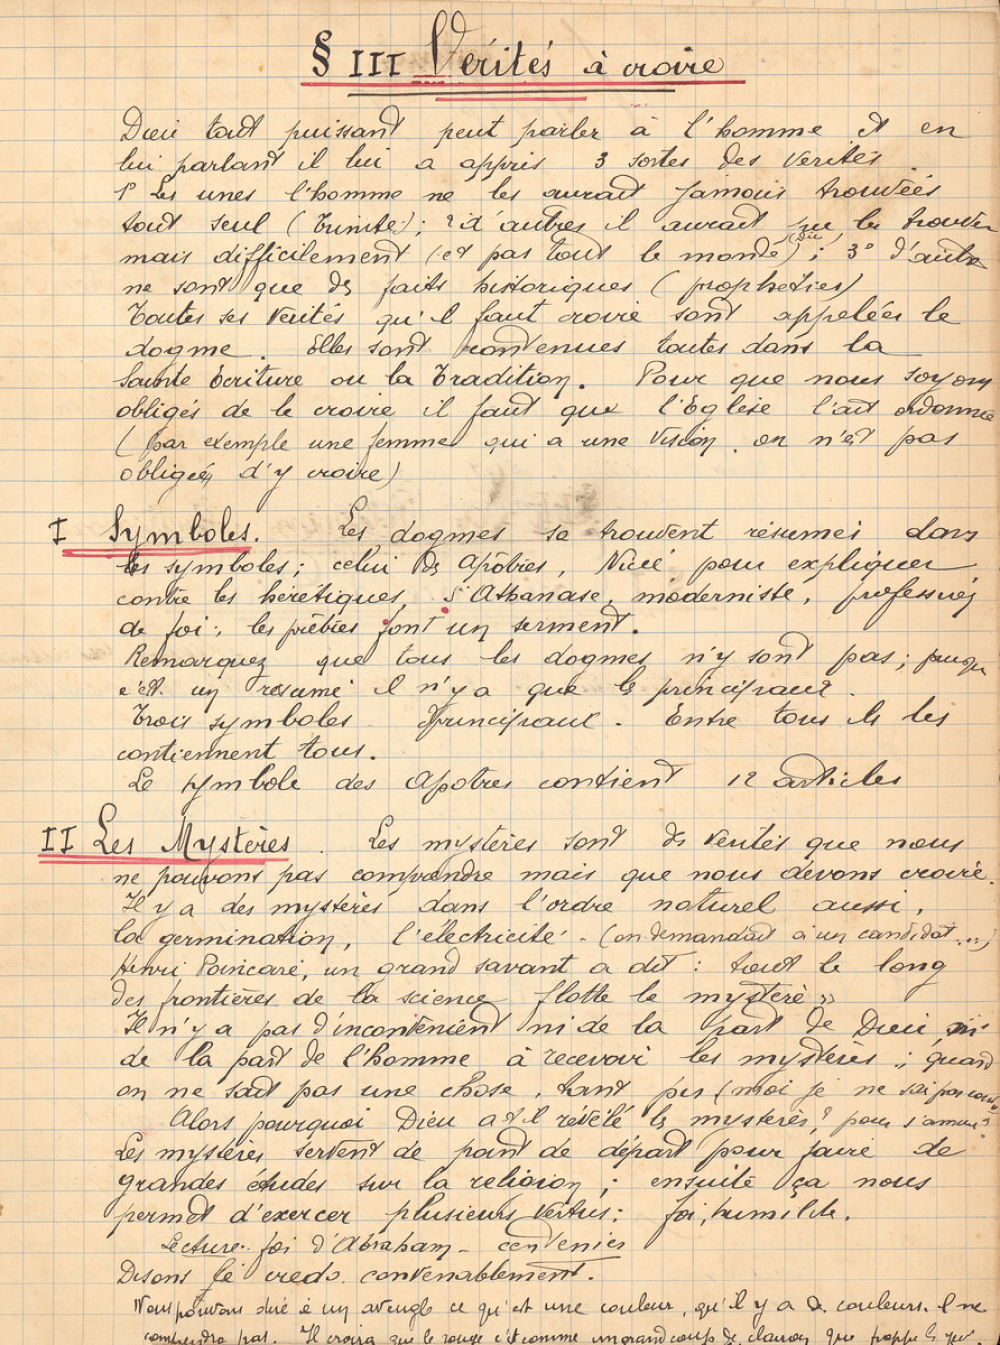 § III Vérités à croire
Dieu tout puissant peut parler à l'homme et en
lui parlant il lui a appris 3 sortes des vérités
1° Les unes l'homme ne les aurait jamais trouvées
tout seul (Trinité); 2° d'autres il aurait pu les trouver
mais difficilement (et pas tout le monde) ; 3° d'autres
ne sont que des faits historiques (prophéties)
Toutes ses vérités qu'il faut croire sont appelées le
dogme. Elles sont contenues toutes dans la
Sainte Ecriture ou la Tradition. Pour que nous soyons
obligés de le croire il faut que l'Eglise l'ait ordonné
(par exemple une femme qui a une vision. on n'est pas
obligés d'y croire)
I Symboles. Les dogmes se trouvent résumés dans
les symboles; celui des Apôtres, Nicée pour expliquer
contre les hérétiques, St Athanase, moderniste, professions
de foi; les prêtres font un serment.
Remarquez que tous les dogmes n'y sont pas; puisque
c'est un résumé il n'y a que les principaux.
Trois symboles principaux. Entre tous ils les
contiennent tous.
Le symbole des Apôtres contient 12 articles
II Les Mystères. Les mystères sont des vérités que nous
ne pouvons pas comprendre mais que nous devons croire.
Il y a des mystères dans l'ordre naturel aussi,
la germination, l'électricité - (on demandait à un candidat ...)
Henri Poincaré, un grand savant a dit : tout le long
des frontières de la science flotte le mystère »
Il n'y a pas d'inconvénient ni de la part de Dieu ni
de la part de l'homme à recevoir les mystères ; quand
on ne sait pas une chose, tant pis (moi je ne sais pas
Alors pourquoi Dieu a-t-il révélé les mystères? pour s'amuser?
Les mystères servent de point de départ pour faire de
grandes études sur la religion ; ensuite ça nous
permet d'exercer plusieurs vertus: foi, humilité.
Lecture: foi d'Abraham - centenier
Disons le credo convenablement.
Nous pouvons dire à un aveugle ce qu'est une couleur, qu'il y a des couleurs. Il ne
comprendra pas. Il croira que le rouge c'est comme un grand coup de clairon que frappe les